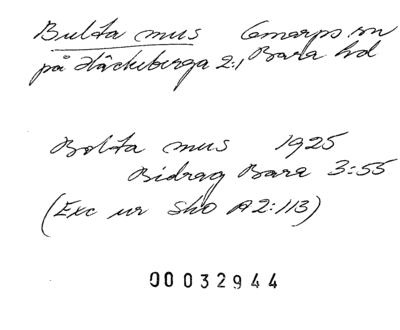 Bulta mus Genarps sn
på Häckeberga 2:1, Bara hd
Bolta mus 1925
Bidrag Bara 3:55
(Exc ur Sko A2:113)
00032944